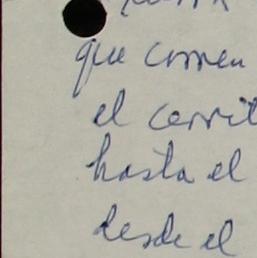 que comen
el cerrit
hasta el
desde el